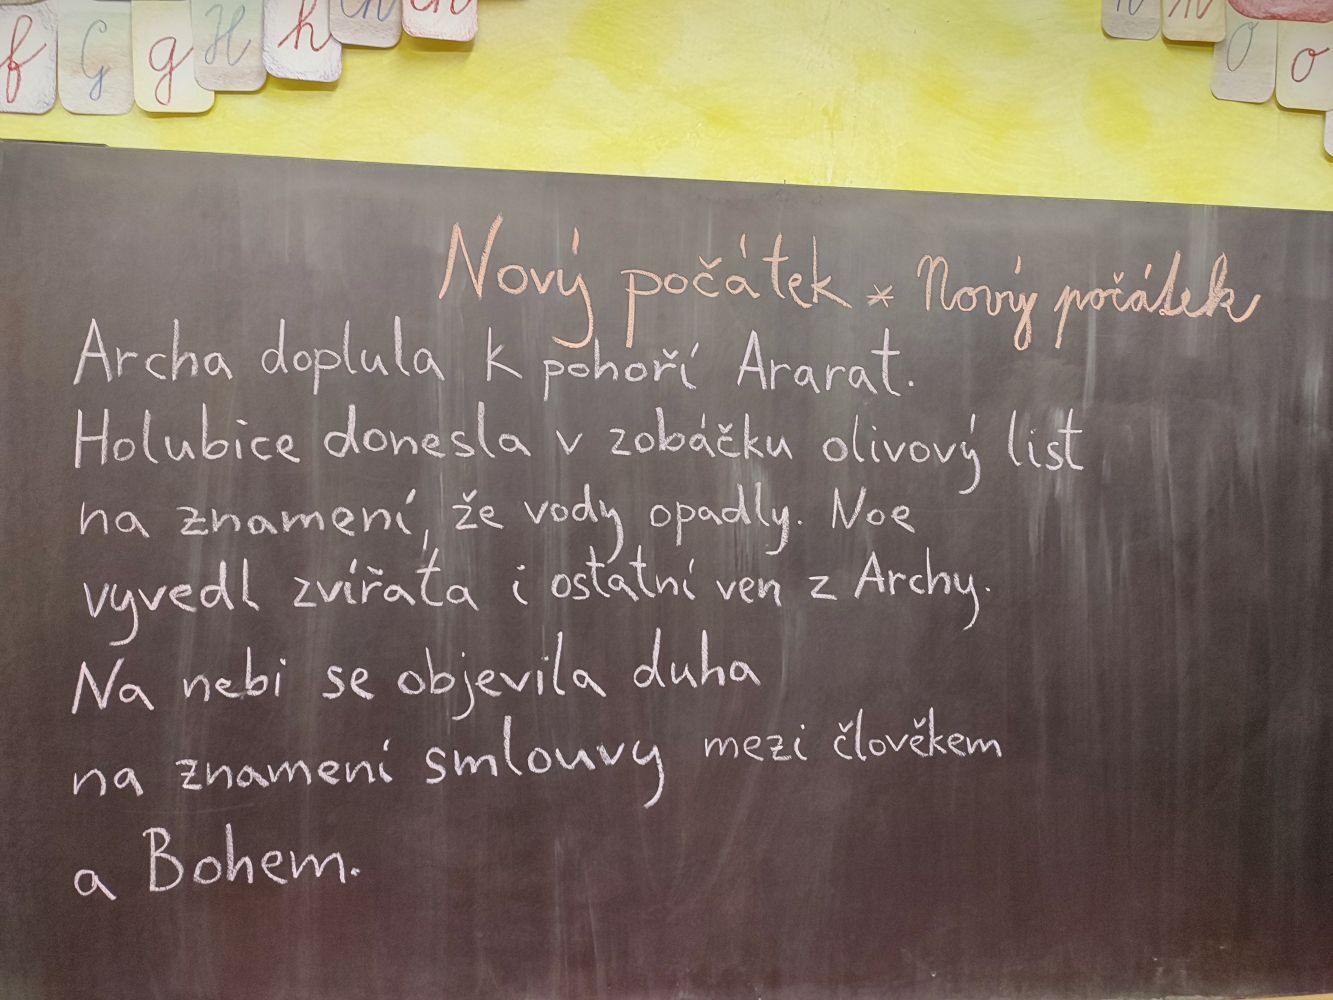 f G g H h Ch ch
o o
Nový počátek * Nový počátek
Archa doplula k pohoří Ararat.
Holubice donesla v zobáčku olivový list
na znamení, že vody opadly. Noe
vyvedl zvířata i ostatní ven z Archy.
Na nebi se objevila duha
na znamení smlouvy mezi člověkem
a Bohem.